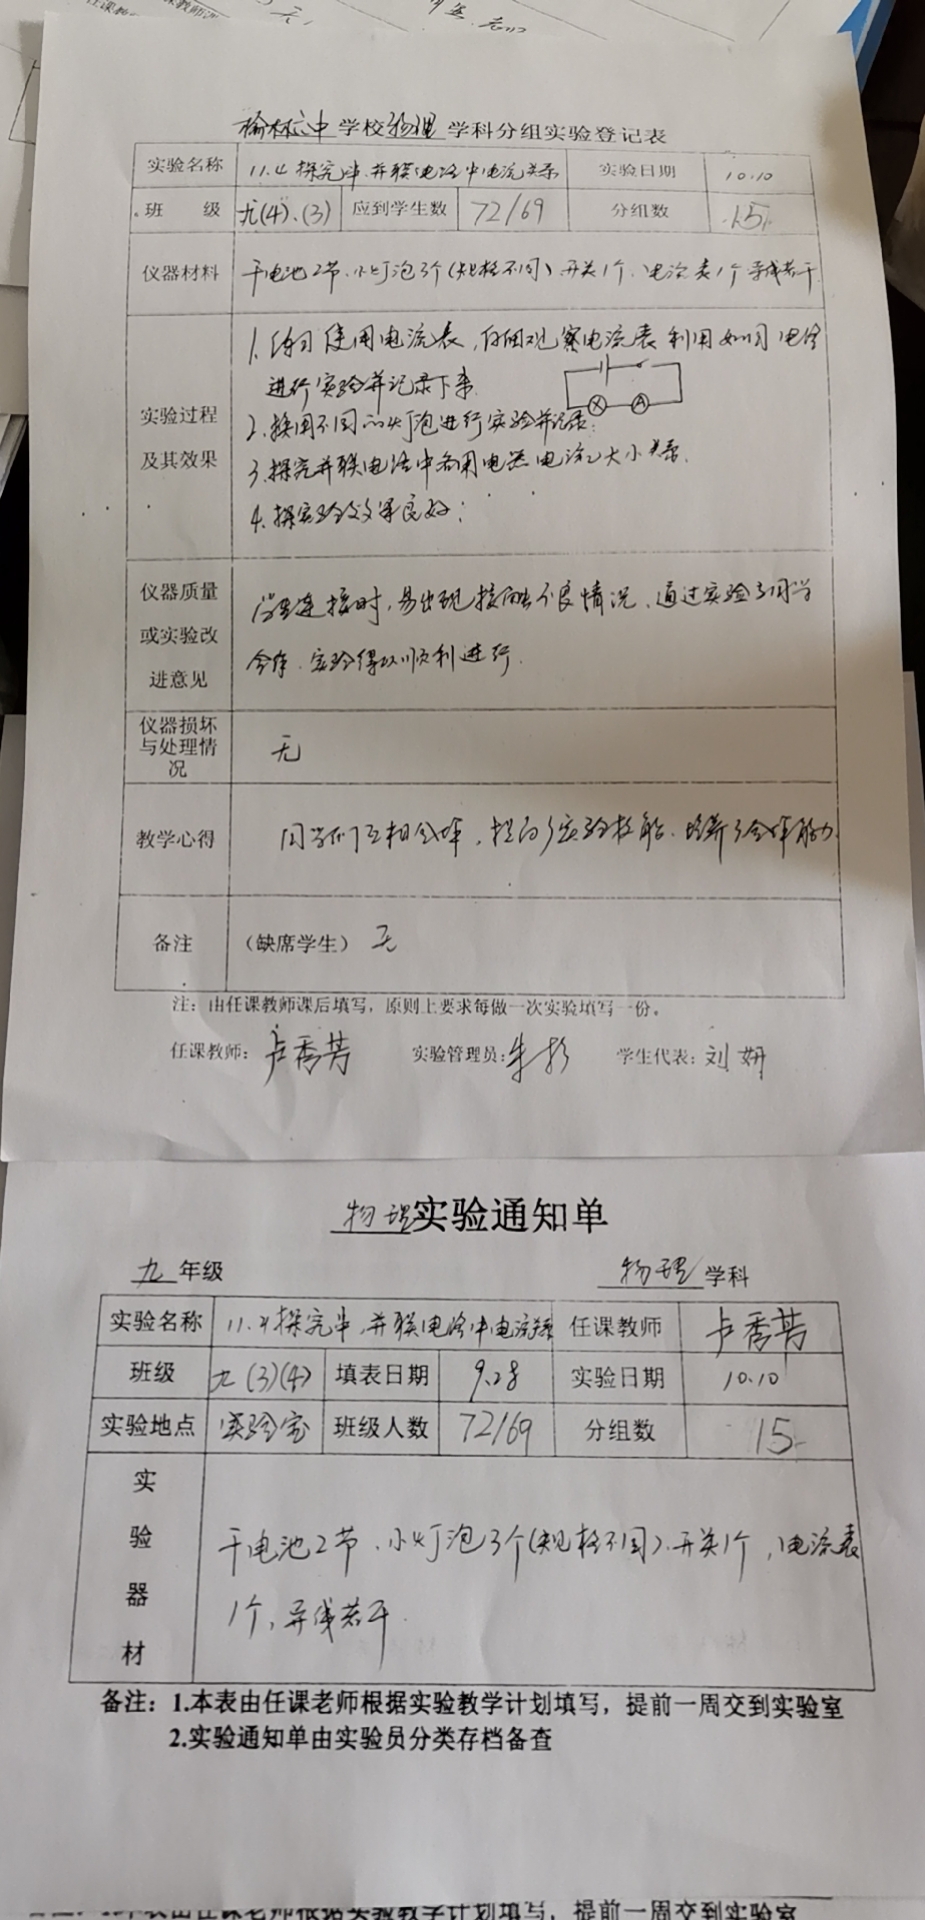 榆林六中学校物理学科分组实验登记表
实验名称 11.4探究串、并联电路中电流关系 实验日期 10.10
班 级 九(4)、(3) 应到学生数 72/69 分组数 15
仪器材料 干电池2节、小灯泡3个(规格不同)开关1个、电流表1个 导线若干
实验过程及其效果
1. 练习使用电流表,仔细观察电流表 利用如图电路
进行实验并记录下来.
A
2. 换用不同的灯泡进行实验并记录;
3. 探究并联电路中各用电器电流之大小关系.
4. 探究实验效果良好;
仪器质量或实验改进意见
学生连接时,易出现接触不良情况、通过实验与同学
合作、实验得以顺利进行.
仪器损坏与处理情况 无
教学心得 同学们互相合作,提高了实验技能、培养了合作能力
备注 (缺席学生) 无
注:由任课教师课后填写,原则上要求每做一次实验填写一份。
任课教师:卢秀芳 实验管理员:朱彬 学生代表:刘妍
物理实验通知单
九年级 物理学科
实验名称 11.4探究串、并联电路中电流关系 任课教师 卢秀芳
班级 九(3)(4) 填表日期 9.28 实验日期 10.10
实验地点 实验室 班级人数 72/69 分组数 15
实验器材
干电池2节、小灯泡3个(规格不同)、开关1个,电流表
1个、导线若干.
备注:1.本表由任课老师根据实验教学计划填写,提前一周交到实验室
2.实验通知单由实验员分类存档备查